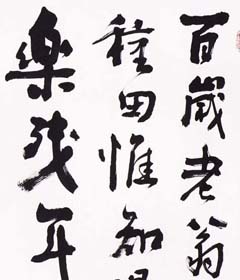 百歲老翁
種田惟知
樂残年